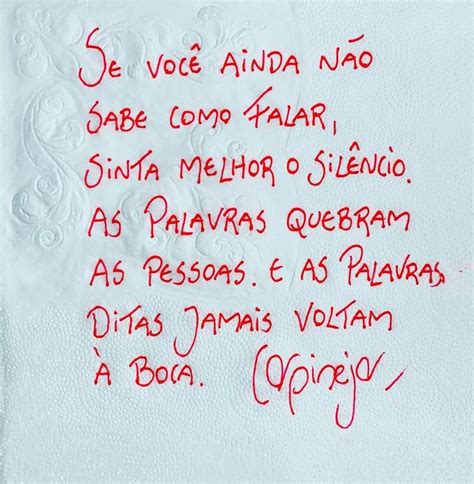 Se você ainda não
sabe como falar,
sinta melhor o silêncio.
As palavras quebram
as pessoas. E as palavras
ditas jamais voltam
à boca. Carpinejar